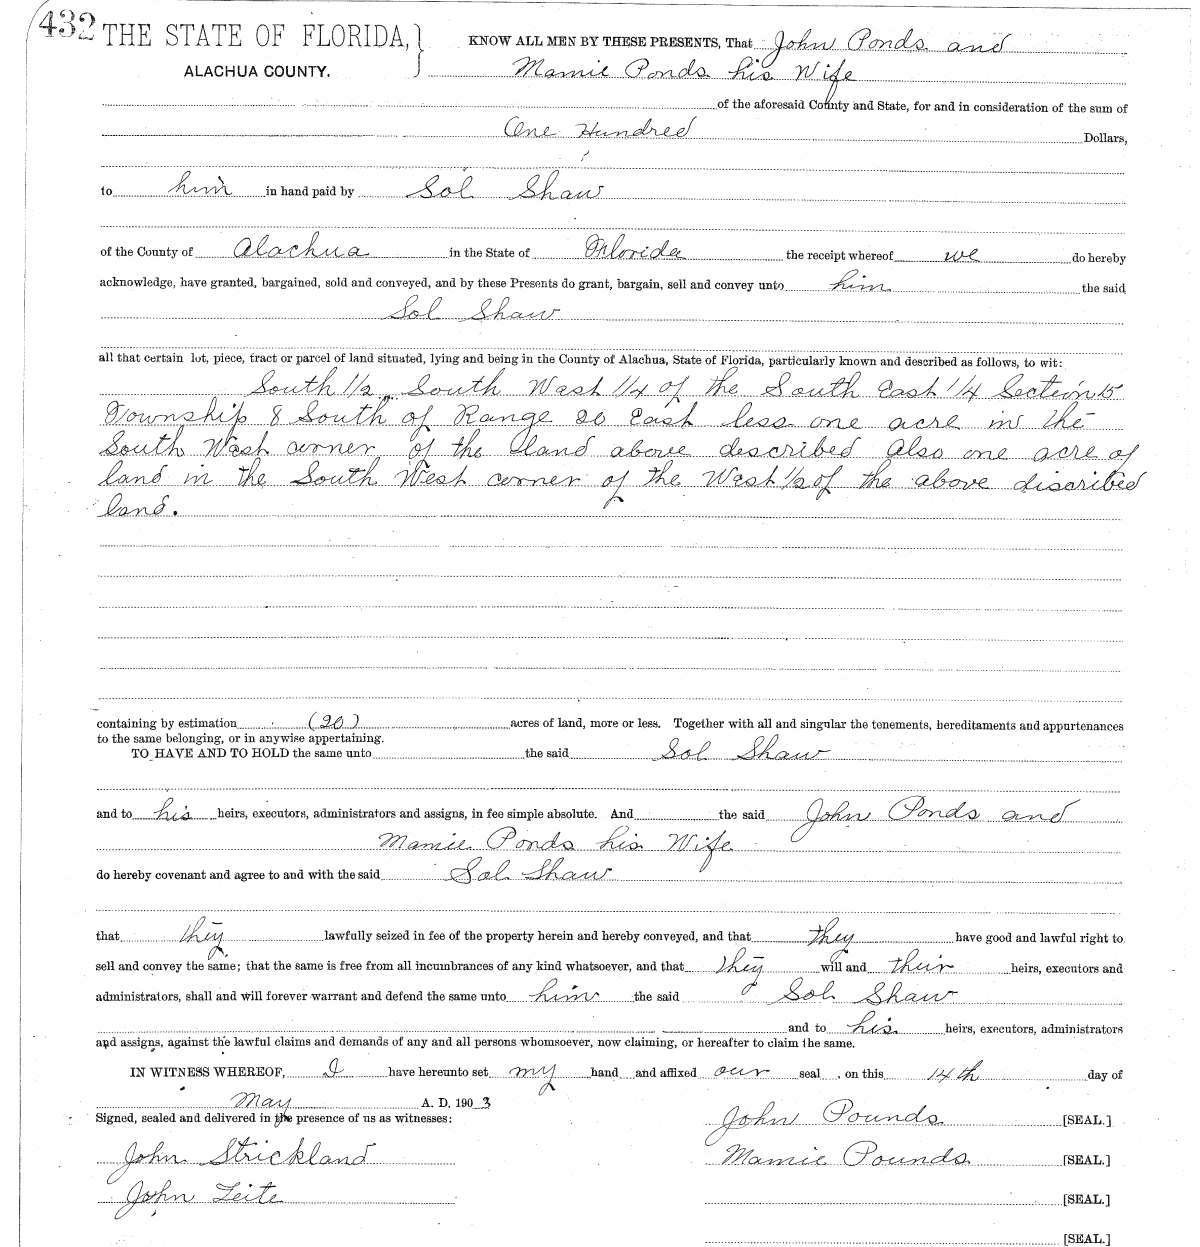 432 THE STATE OF FLORIDA, } KNOW ALL MEN BY THESE PRESENTS, That John Ponds and
ALACHUA COUNTY. Mamie Ponds his Wife
of the aforesaid County and State, for and in consideration of the sum of
One Hundred Dollars,
to him in hand paid by Sol Shaw
of the County of Alachua in the State of Florida the receipt whereof we do hereby
acknowledge, have granted, bargained, sold and conveyed, and by these Presents do grant, bargain, sell and convey unto him the said
Sol Shaw
all that certain lot, piece, tract or parcel of land situated, lying and being in the County of Alachua, State of Florida, particularly known and described as follows, to wit:
South 1/2 South West 1/4 of the South East 1/4 Section 15
Township 8 South of Range 20 East less one acre in the
South West corner of the land above described Also one acre of
land in the South West corner of the West 1/2 of the above discribed
land.
containing by estimation (20) acres of land, more or less. Together with all and singular the tenements, hereditaments and appurtenances
to the same belonging, or in anywise appertaining.
TO HAVE AND TO HOLD the same unto the said Sol Shaw
and to his heirs, executors, administrators and assigns, in fee simple absolute. And the said John Ponds and
Mamie Ponds his Wife
do hereby covenant and agree to and with the said Sol Shaw
that they lawfully seized in fee of the property herein and hereby conveyed, and that they have good and lawful right to
sell and convey the same; that the same is free from all incumbrances of any kind whatsoever, and that they will and their heirs, executors and
administrators, shall and will forever warrant and defend the same unto him the said Sol Shaw
and to his heirs, executors, administrators
and assigns, against the lawful claims and demands of any and all persons whomsoever, now claiming, or hereafter to claim the same.
IN WITNESS WHEREOF, I have hereunto set my hand and affixed our seal, on this 14th day of
May A. D. 1903
Signed, sealed and delivered in the presence of us as witnesses: John Pounds [SEAL.]
John Strickland Mamie Pounds [SEAL.]
John Teite [SEAL.]
[SEAL.]